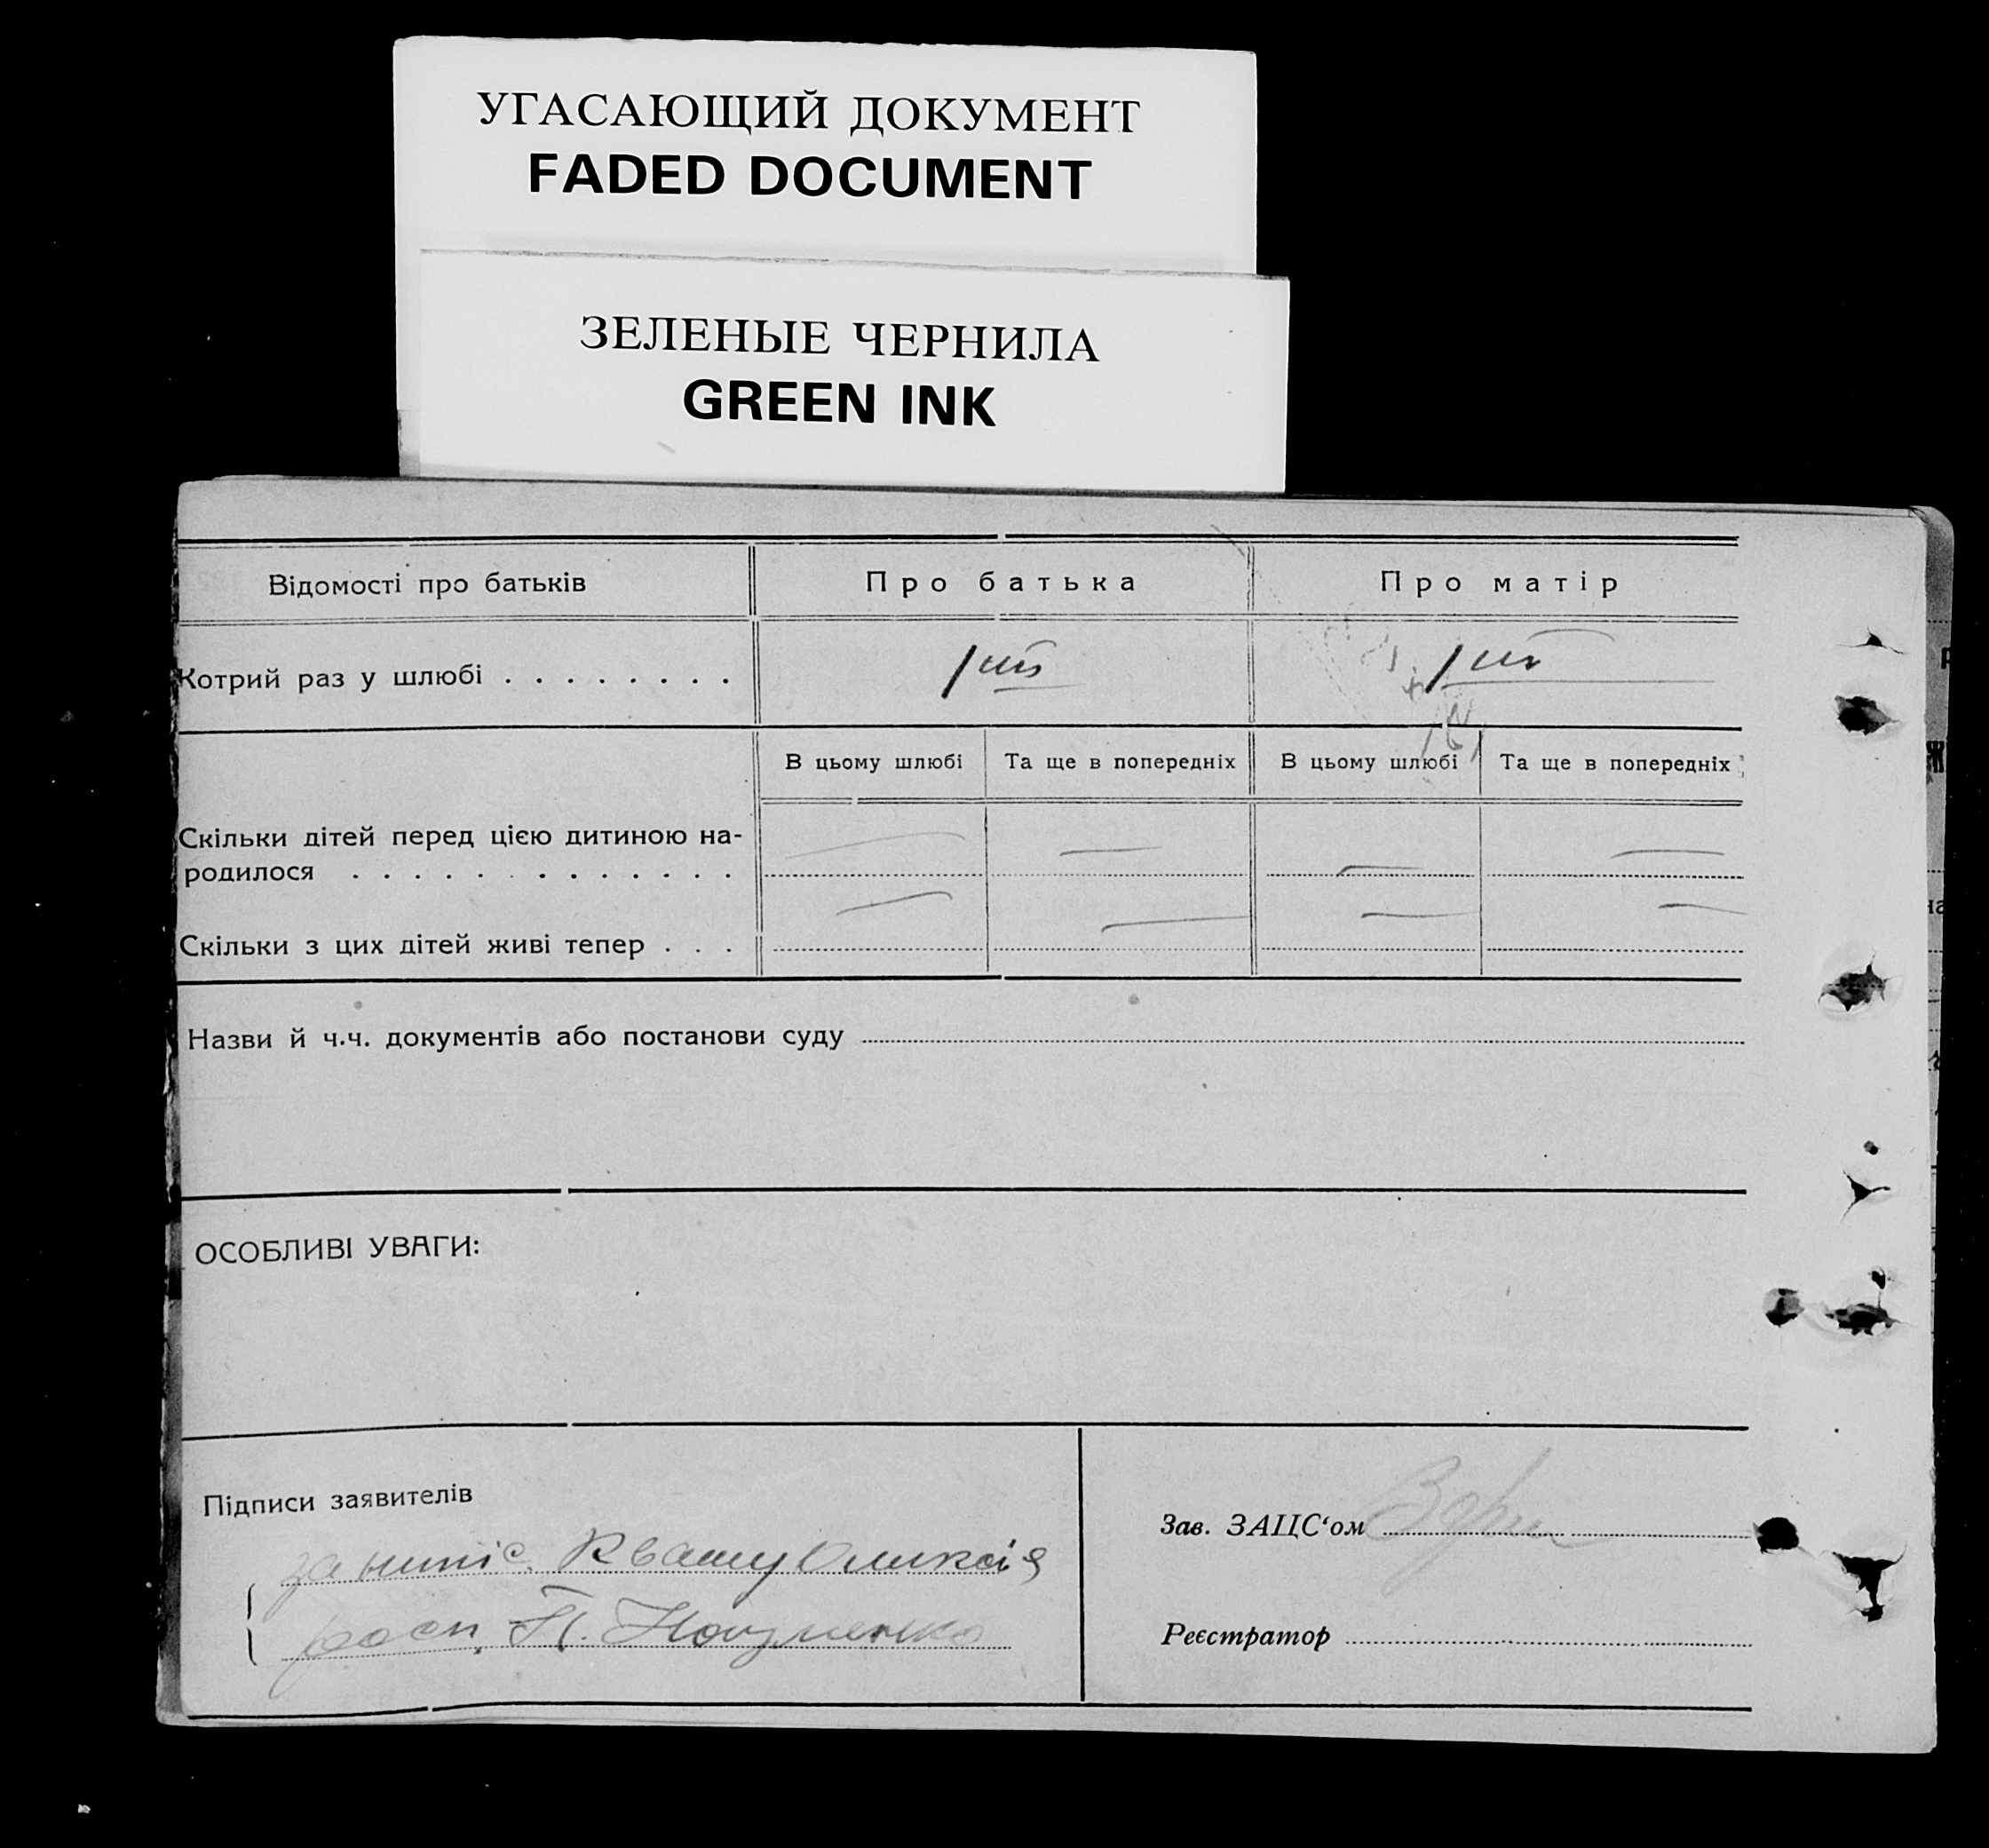 УГАСАЮЩИЙ ДОКУМЕНТ
FADED DOCUMENT
ЗЕЛЕНЫЕ ЧЕРНИЛА
GREEN INK
Відомості про батьків Про батька Про матір
Котрий раз у шлюбі . . . . . . . .
В цьому шлюбі Та ще в попередніх В цьому шлюбі Та ще в попередніх
Скільки дітей перед цією дитиною на-
родилося . . . . . . . . . . . . .
Скільки з цих дітей живі тепер . . .
Назви й ч.ч. документів або постанови суду
ОСОБЛИВІ УВАГИ:
Підписи заявителів
Зав. ЗАЦС‘ом
Квашу
Реєстратор